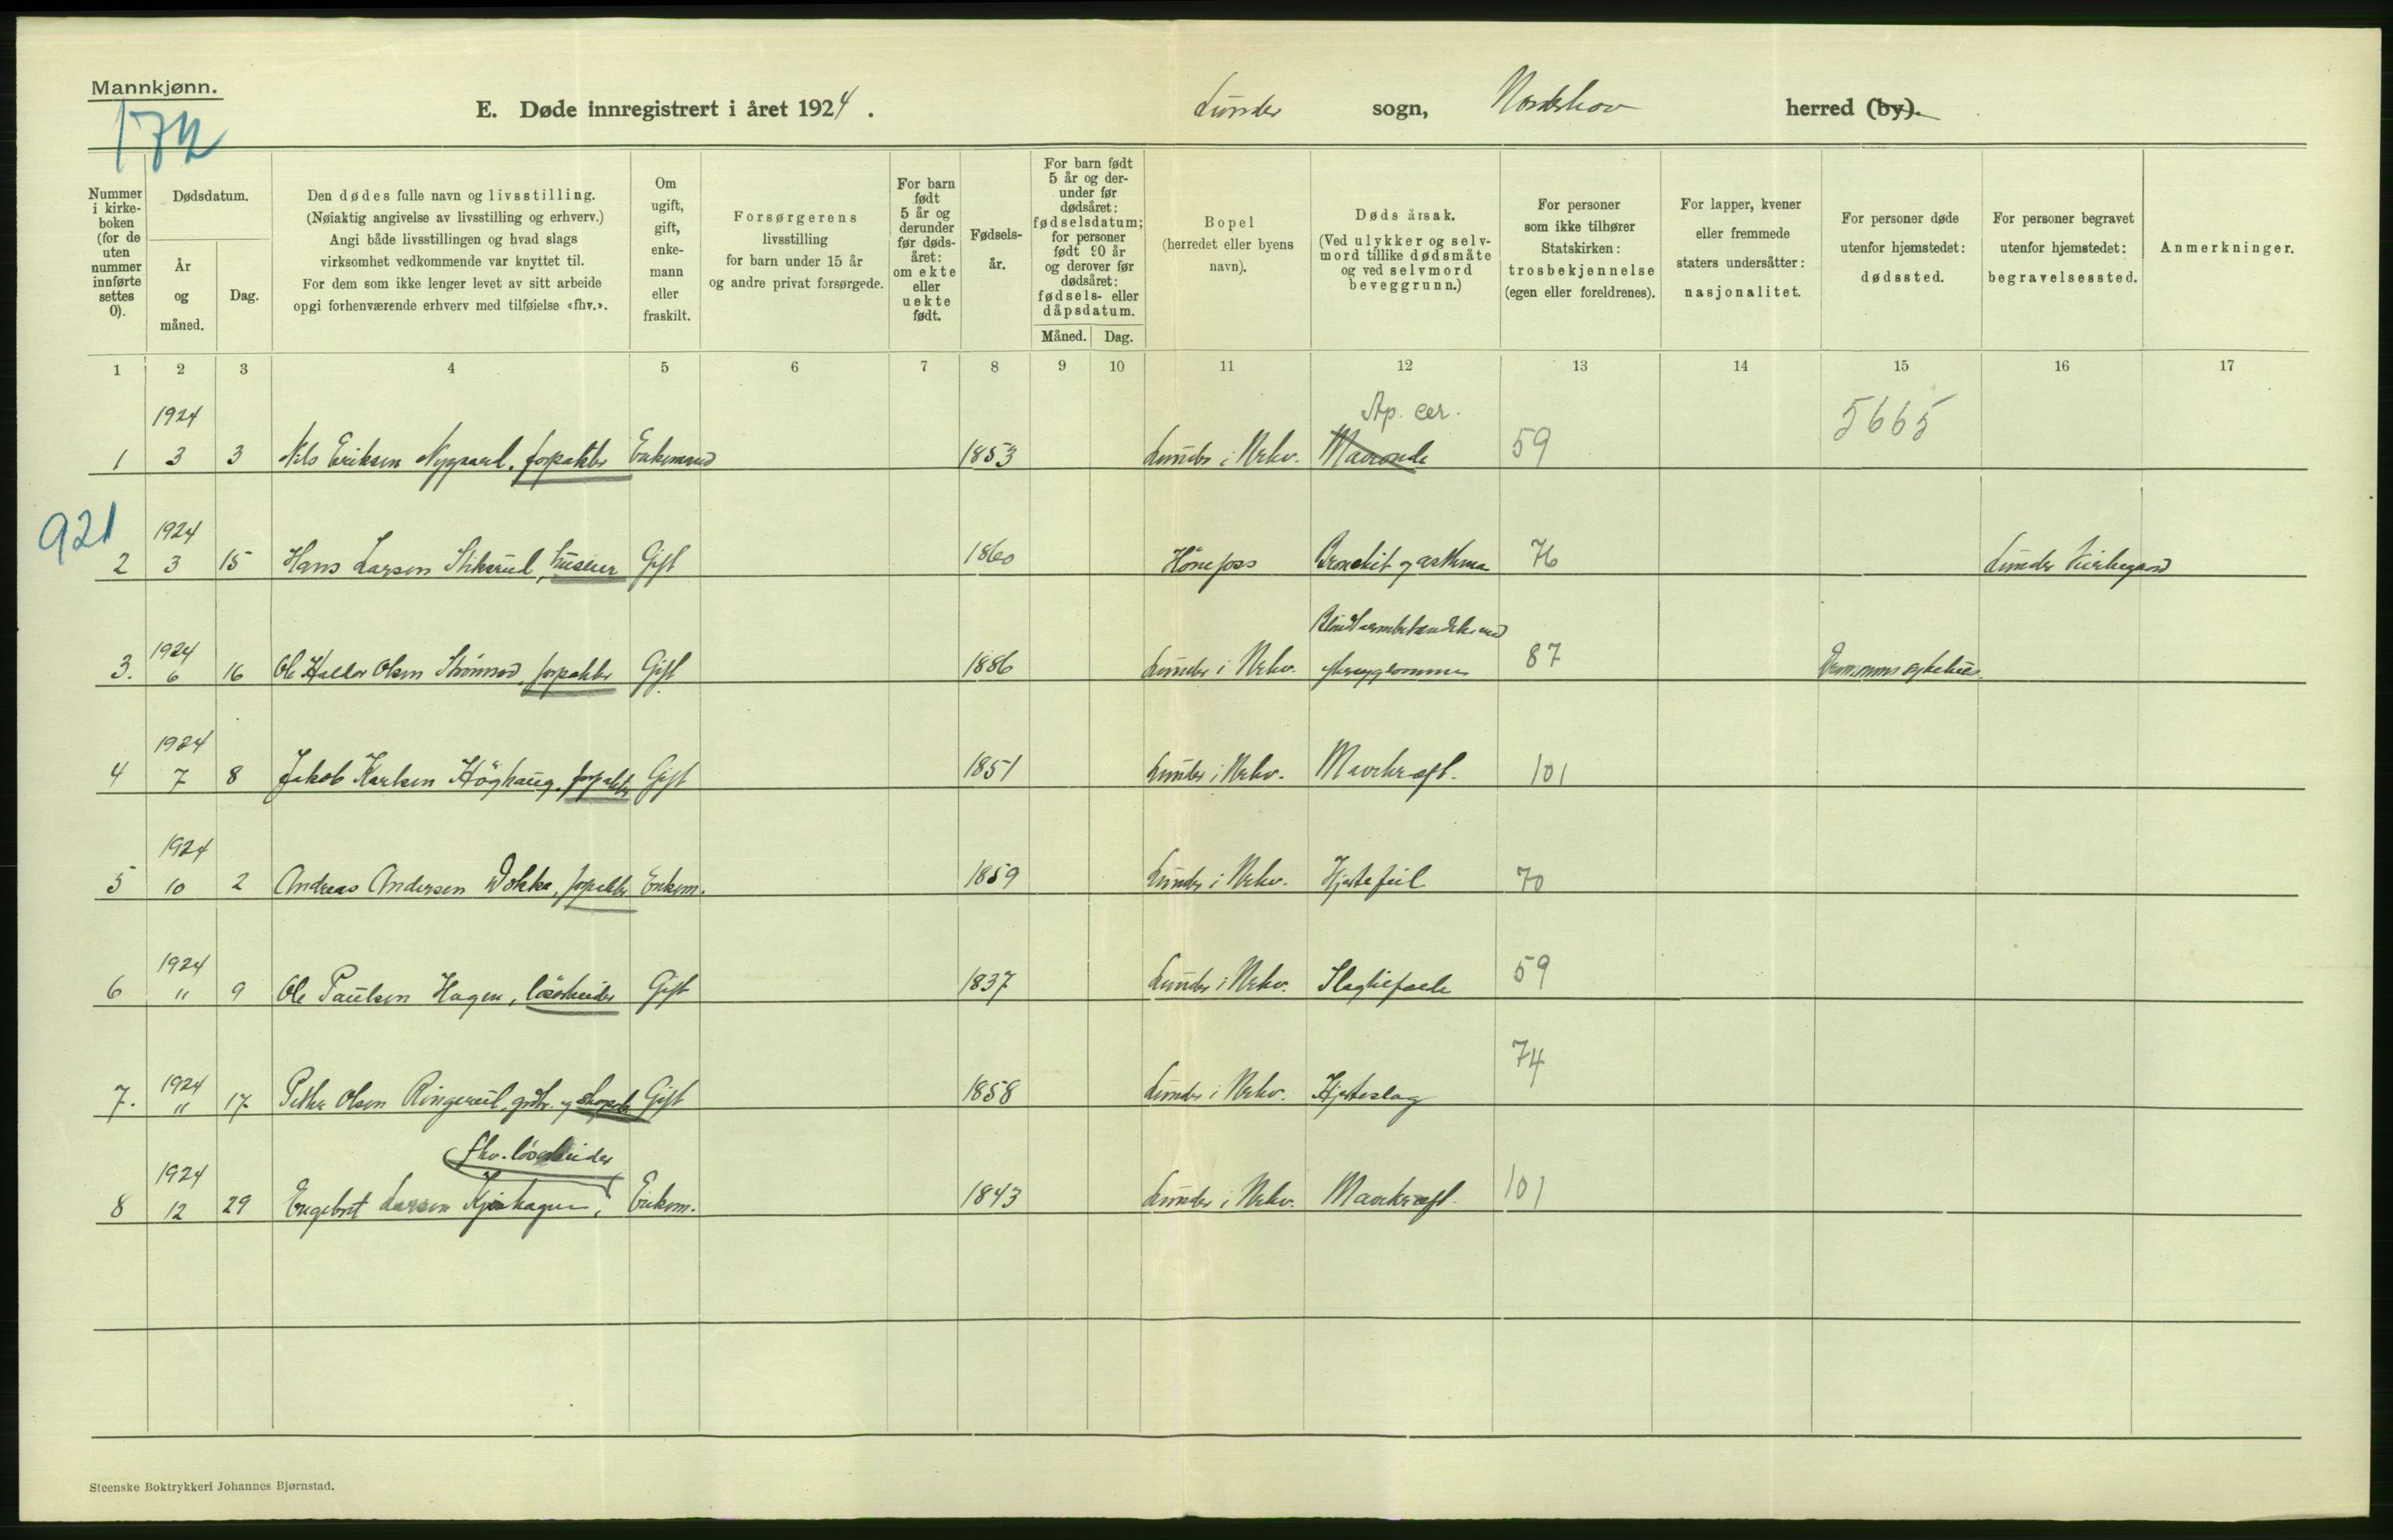 Mannkjønn.
172
E. Døde innregistrert i året 1924.
Lunder sogn, Norderhov herred (by).
Nummer i kirkeboken (for de uten nummer innførte settes 0).
Dødsdatum.
År og måned.
Dag.
Den dødes fulle navn og livsstilling.
(Nøiaktig angivelse av livsstilling og erhverv.)
Angi både livsstillingen og hvad slags
virksomhet vedkommende var knyttet til.
For dem som ikke lenger levet av sitt arbeide
opgi forhenværende erhverv med tilføielse «fhv.».
Om ugift, gift, enkemann eller fraskilt.
Forsørgerens livsstilling for barn under 15 år og andre privat forsørgede.
For barn født 5 år og derunder før dødsåret: om ekte eller uekte født.
Fødselsår.
For barn født 5 år og derunder før dødsåret: fødselsdatum; for personer født 90 år og derover før dødsåret: fødsels- eller dåpsdatum.
Måned. Dag.
Bopel (herredet eller byens navn).
Døds årsak.
(Ved ulykker og selvmord tillike dødsmåte og ved selvmord beveggrunn.)
For personer som ikke tilhører Statskirken: trosbekjennelse (egen eller foreldrenes).
For lapper, kvener eller fremmede staters undersåtter: nasjonalitet.
For personer døde utenfor hjemstedet: dødssted.
For personer begravet utenfor hjemstedet: begravelsessted.
Anmerkninger.
1 2 3 4 5 6 7 8 9 10 11 12 13 14 15 16 17
1924 Ap. cer. 5665
1 3 3 Nils Eriksen Nygaard, forpakter Enkemand 1853 Lunder i Nrhv. Maveonde 59
921
1924
2 3 15 Hans Larsen Stikarud, huseier Gift 1860 Hönefoss Bronchit og asthma 76 Lunder Kirkegaard
1924
3. 6 16 Ole Halvor Olsen forpakter Gift 1886 Lunder i Nrhv. 87
1924
4 7 8 Jakob Karlsen Höghaug, forpakter Gift 1851 Lunder i Nrhv. Mavekræft. 101
1924
5 10 2 Andreas Andersen Dokka, forpakter Enkem. 1859 Lunder i Nrhv. Hjertefeil 70
1924
6 " 9 Ole Paulsen Hagen, løsarbeider Gift 1837 Lunder i Nrhv. Slagtilfælle 59
1924 74
7. " 17 Petter Olsen Ringerud, grdbr. og skogarb. Gift 1858 Lunder i Nrhv. Hjerteslag
fhv. løsarbeider
1924
8 12 29 Engebret Larsen Enkem. 1843 Lunder i Nrhv. Mavekræft. 101
Steenske Boktrykkeri Johannes Bjørnstad.